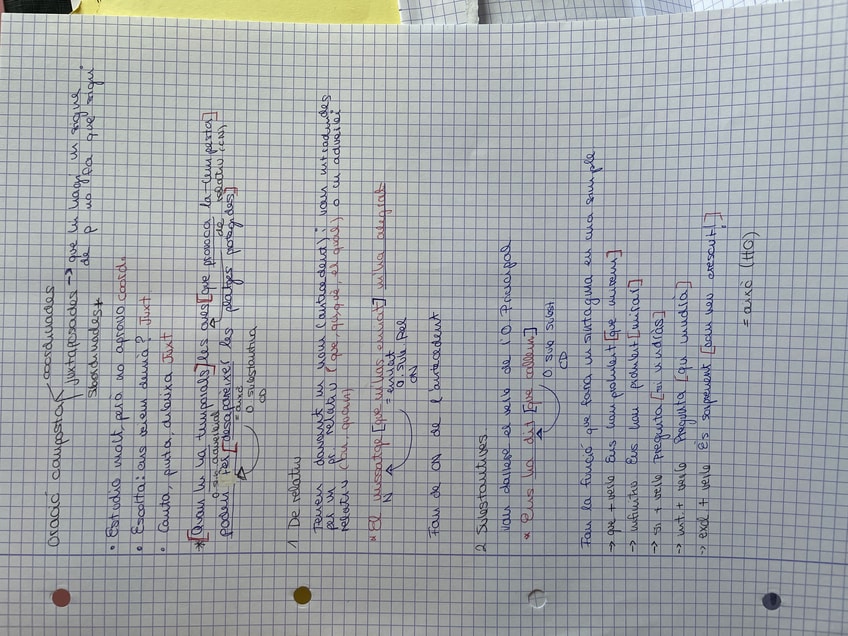 Oració composta
coordinades
juxtaposades → que hi hagi un signe
de p no fa que sigui
subordinades *
• Estudio molt, però no aprovo coord.
• Escolta: ens veiem demà? Juxt
• Canta, pinta, dibuixa Juxt
* [Quan hi ha temporals] les ones [que provoca la tempesta]
o. sub adverbial
de relatiu (CN)
poden fer [desaparèixer les platges protegides]
= això
O. substantiva
CD
1 De relatiu
Tenen davant un nom (antecedent); van introduïdes
per un pr. relatiu (que, qui, què, el qual) o un adverbi
relatiu (on, quan)
* El missatge [que m'has enviat] m'ha alegrat
N = enviat
O. sub Rel
CN
Fan de CN de l'antecedent
2 Substantives
Van darrere el verb de l'O Principal
* Ens ha dit [que callem]
O sub subst
CD
Fan la funció que faria un sintagma en una simple
→ que + verb Ens han prohibit [que mirem]
→ infinitiu Ens han prohibit [mirar]
→ si + verb Pregunta [si vindràs]
→ int. + verb Pregunta [qui vindrà]
→ excl + verb És sorprenent [com heu crescut!]
= això (HO)